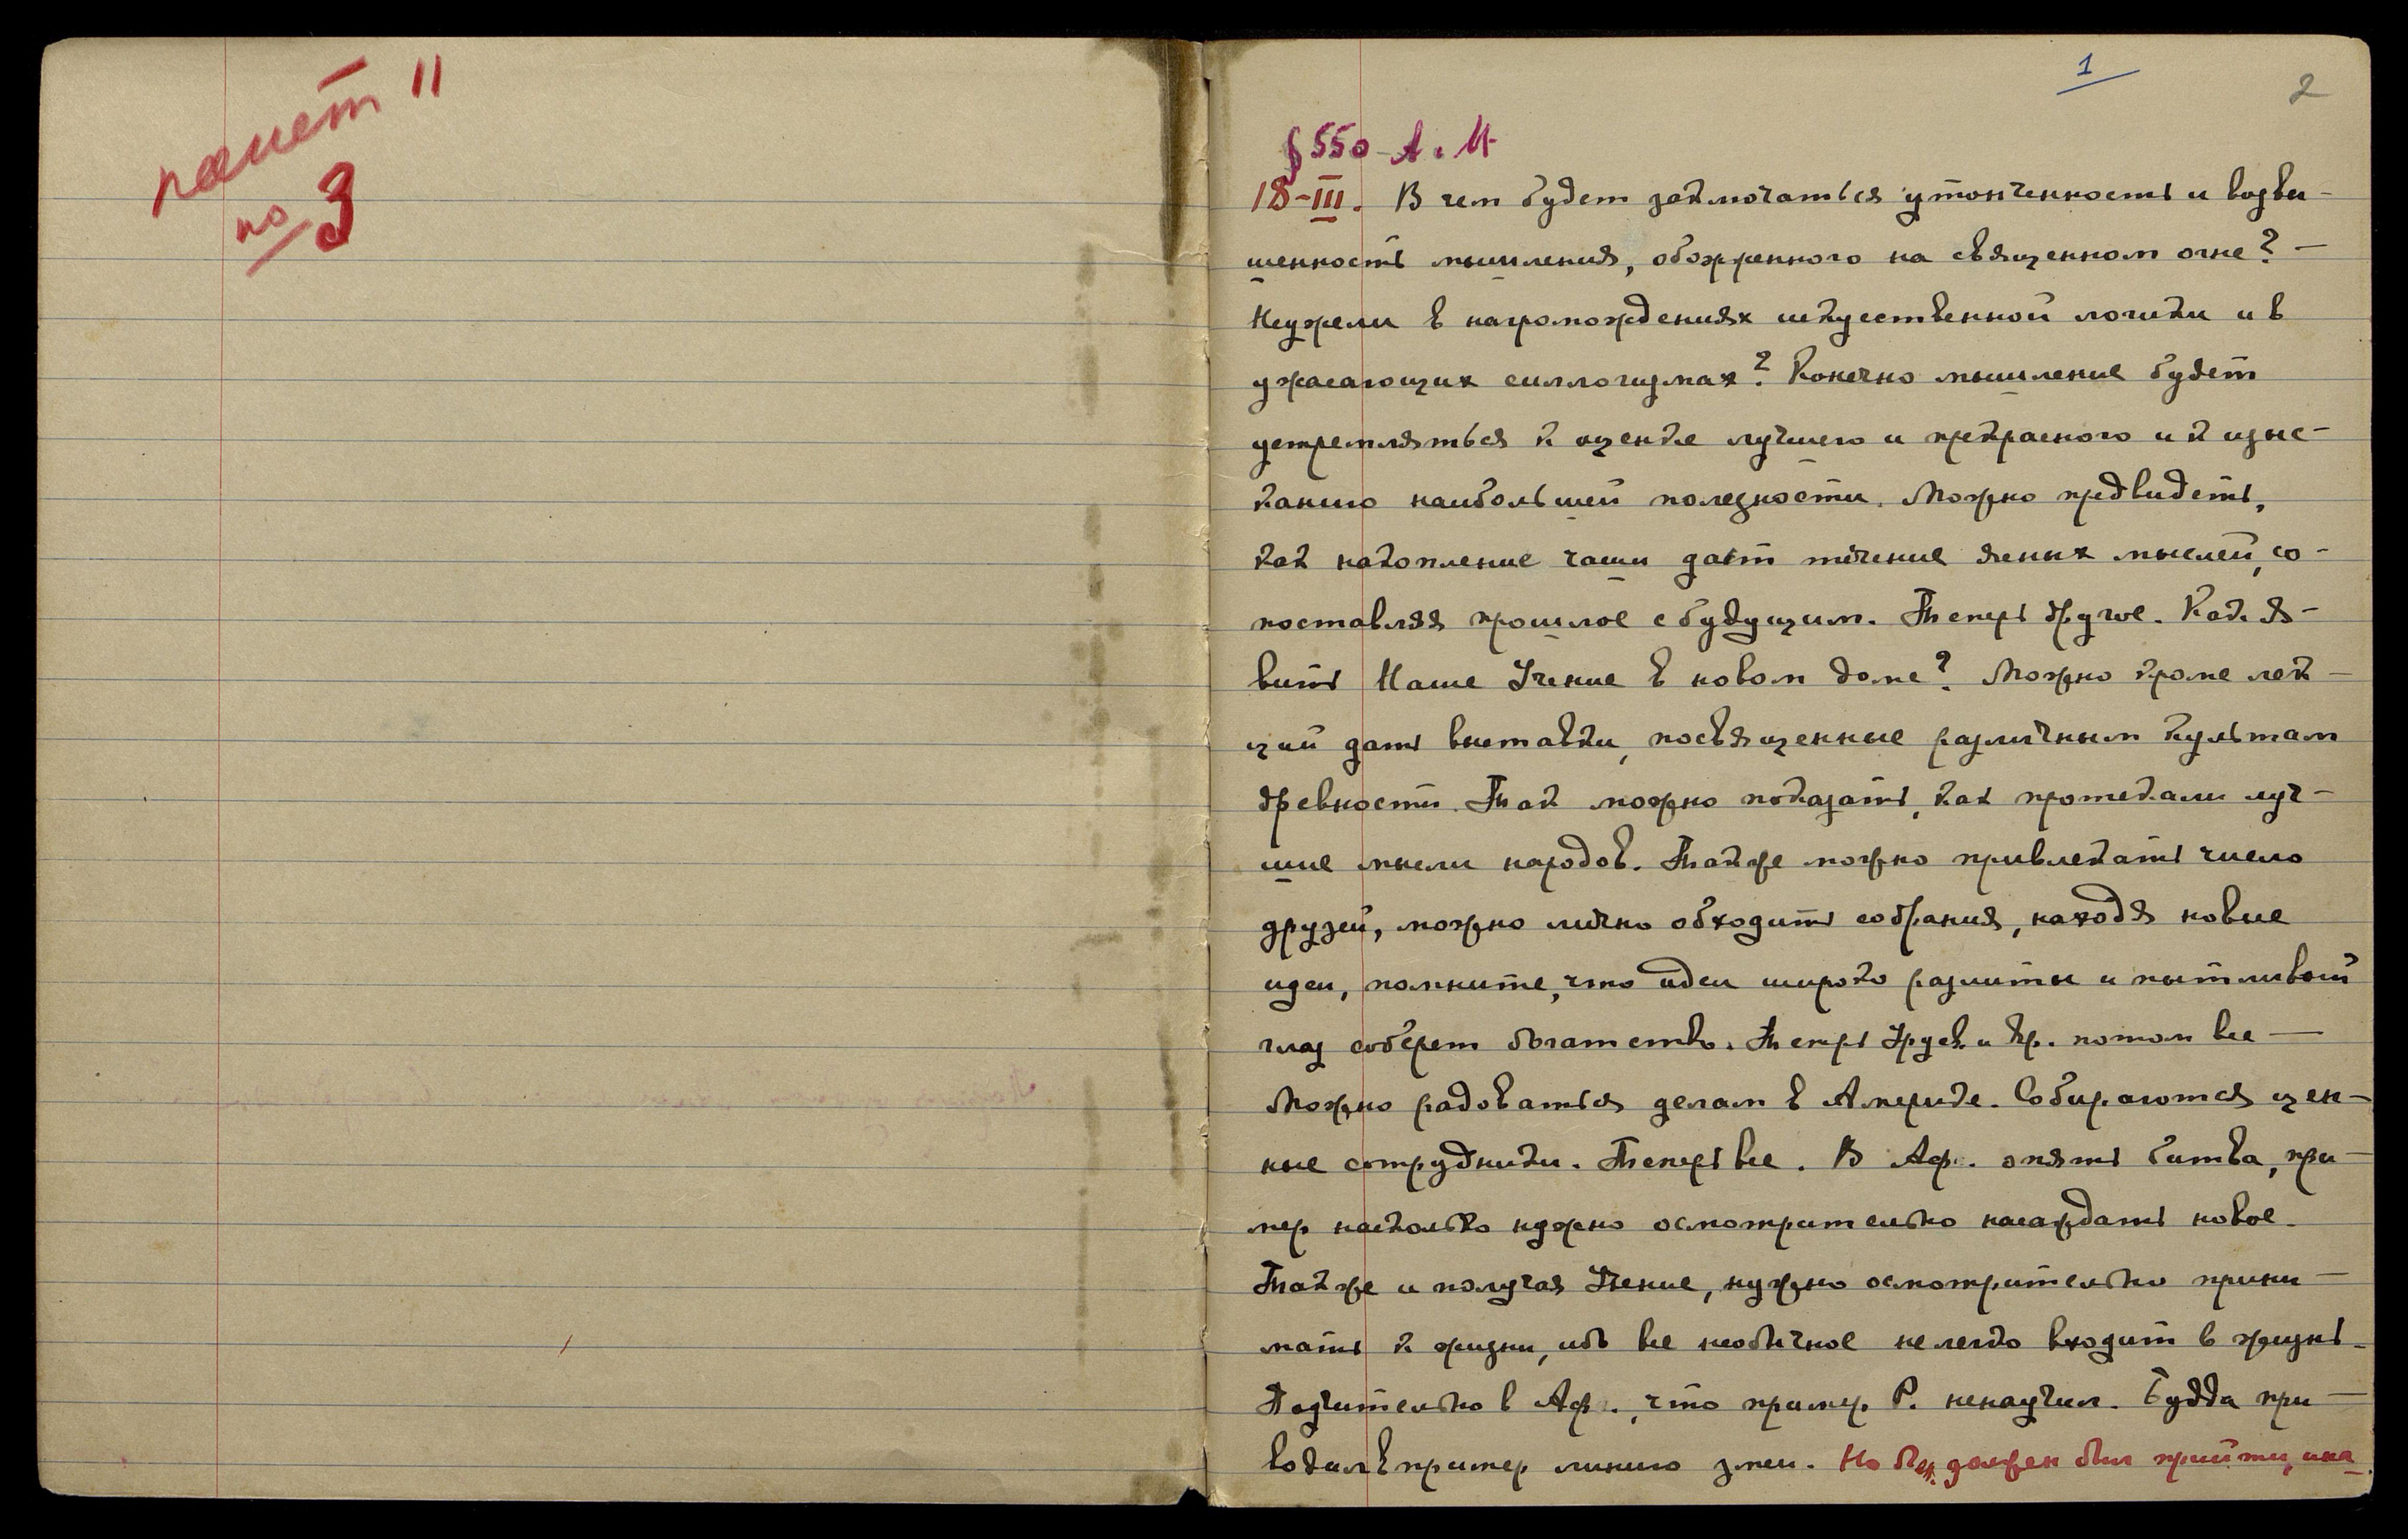 пакет 11
no 3
1
2
§ 550 А. Й
18-III. В чем будет заключаться утонченность и возвы-
шенность мышления, обожженного на священном огне? —
Неужели в нагромождениях искусственной логики и в
ужасающих силлогизмах? Конечно мышление будет
устремляться к оценке лучшего и прекрасного и к изыс-
канию наибольшей полезности. Можно предвидеть,
как накопление чаши дает течение ясных мыслей, со-
поставляя прошлое с будущим. Теперь другое. Как я-
вить Наше Учение в новом доме? Можно кроме лек-
ций дать выставки, посвященные различным культам
древности. Так можно показать, как протекали луч-
шие мысли народов. Также можно привлекать число
друзей, можно лично обходить собрания, находя новые
идеи, помните, что идеи широко разлиты и пытливый
глаз соберет богатство. Теперь и Кр. потом все —
Можно радоваться делам в Америке. Собираются цен-
ные сотрудники. Теперь все. В Аф. опять битва, при-
мер насколько нужно осмотрительно насаждать новое.
Также и получая Учение, нужно осмотрительно прини-
мать к жизни, ибо все необычное не легко входит в жизнь.
Поучительно в Аф., что пример Р. ненаучил. Будда при-
водил в пример линию змеи. Но должен был прийти, ина